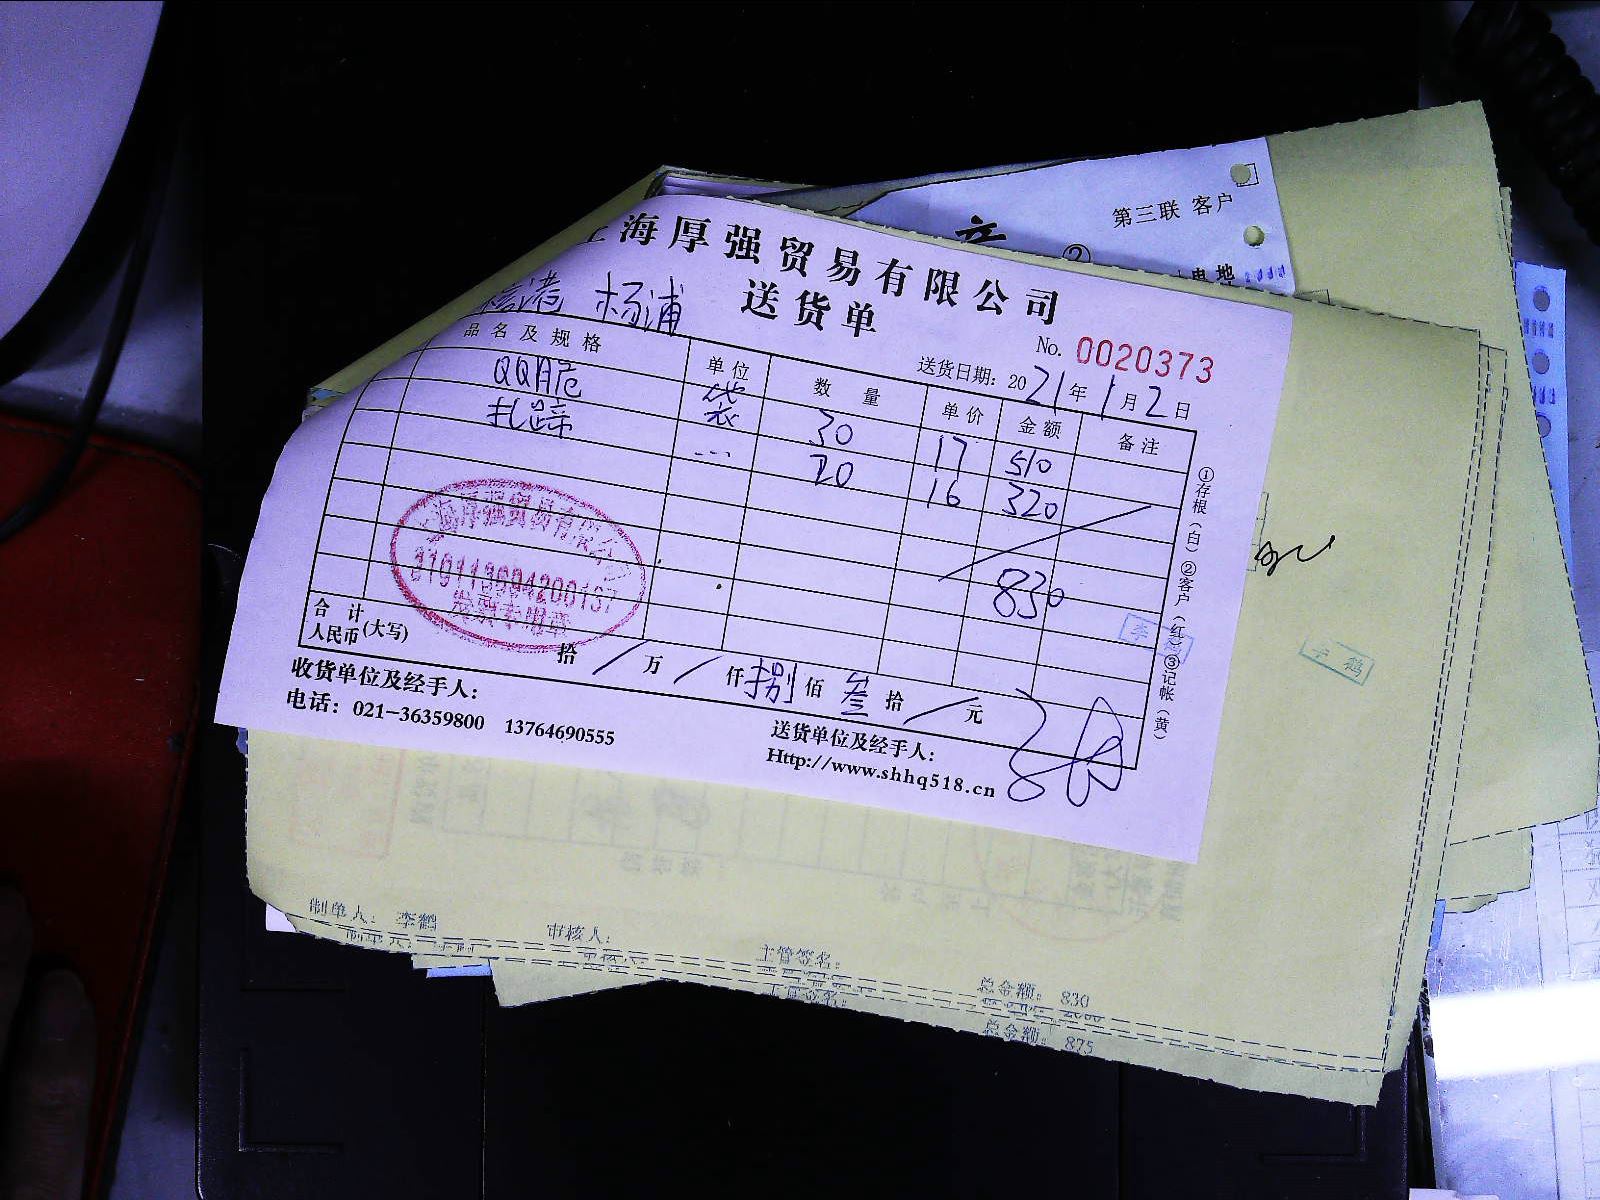 第三联 客户
②
电 地
上海厚强贸易有限公司
送货单
杨浦
No. 0020373
送货日期: 2021年1月2日
品名及规格 单位 数量 单价 金额 备注
QQ脆 袋 30 17 510
扎蹄 … 20 16 320
830
上海厚强贸易有限公司
发票专用章
合计
人民币(大写) 拾/万/仟捌佰叁拾/元
收货单位及经手人:
送货单位及经手人:
电话: 021-36359800 13764690555
Http://www.shhq518.cn
①存根(白)②客户(红)③记帐(黄)
李鹤
制单人: 李鹤 审核人: 主管签名: 总金额: 830
总金额: 875